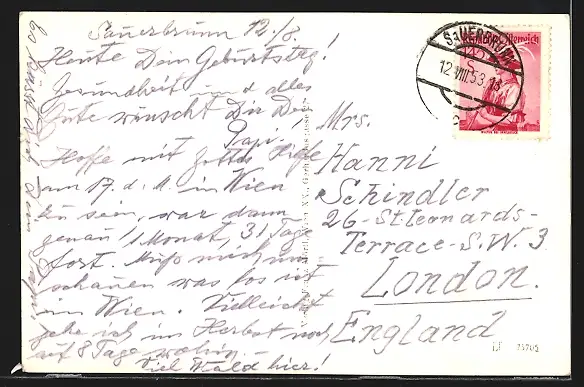 Sauerbrunn 12./8.
Heute Dein Geburtstag!
Gesundheit und alles
Gute wünscht Dir Dein
Papi!
Hoffe mit Gottes Hilfe
am 17. d. M. in Wien
zu sein, war dann
genau 1 Monat, 31 Tage
fort. Muß mich um
schauen was los ist
in Wien. Vielleicht
gehe ich im Herbst noch
auf 8 Tage
Viel Wald hier!
Mrs.
Hanni
Schindler
26 - St. Leonards -
Terrace - S.W. 3
London.
England
SAUERBRUNN
12.VIII.53.18
c
Österreich